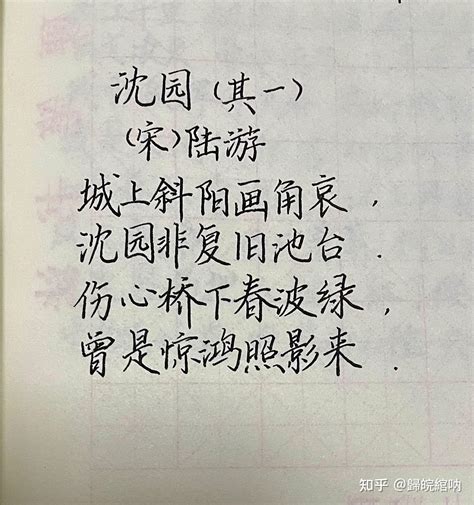 沈园（其一）
（宋）陆游
城上斜阳画角哀，
沈园非复旧池台．
伤心桥下春波绿，
曾是惊鸿照影来．
知乎 @歸皖綰呐